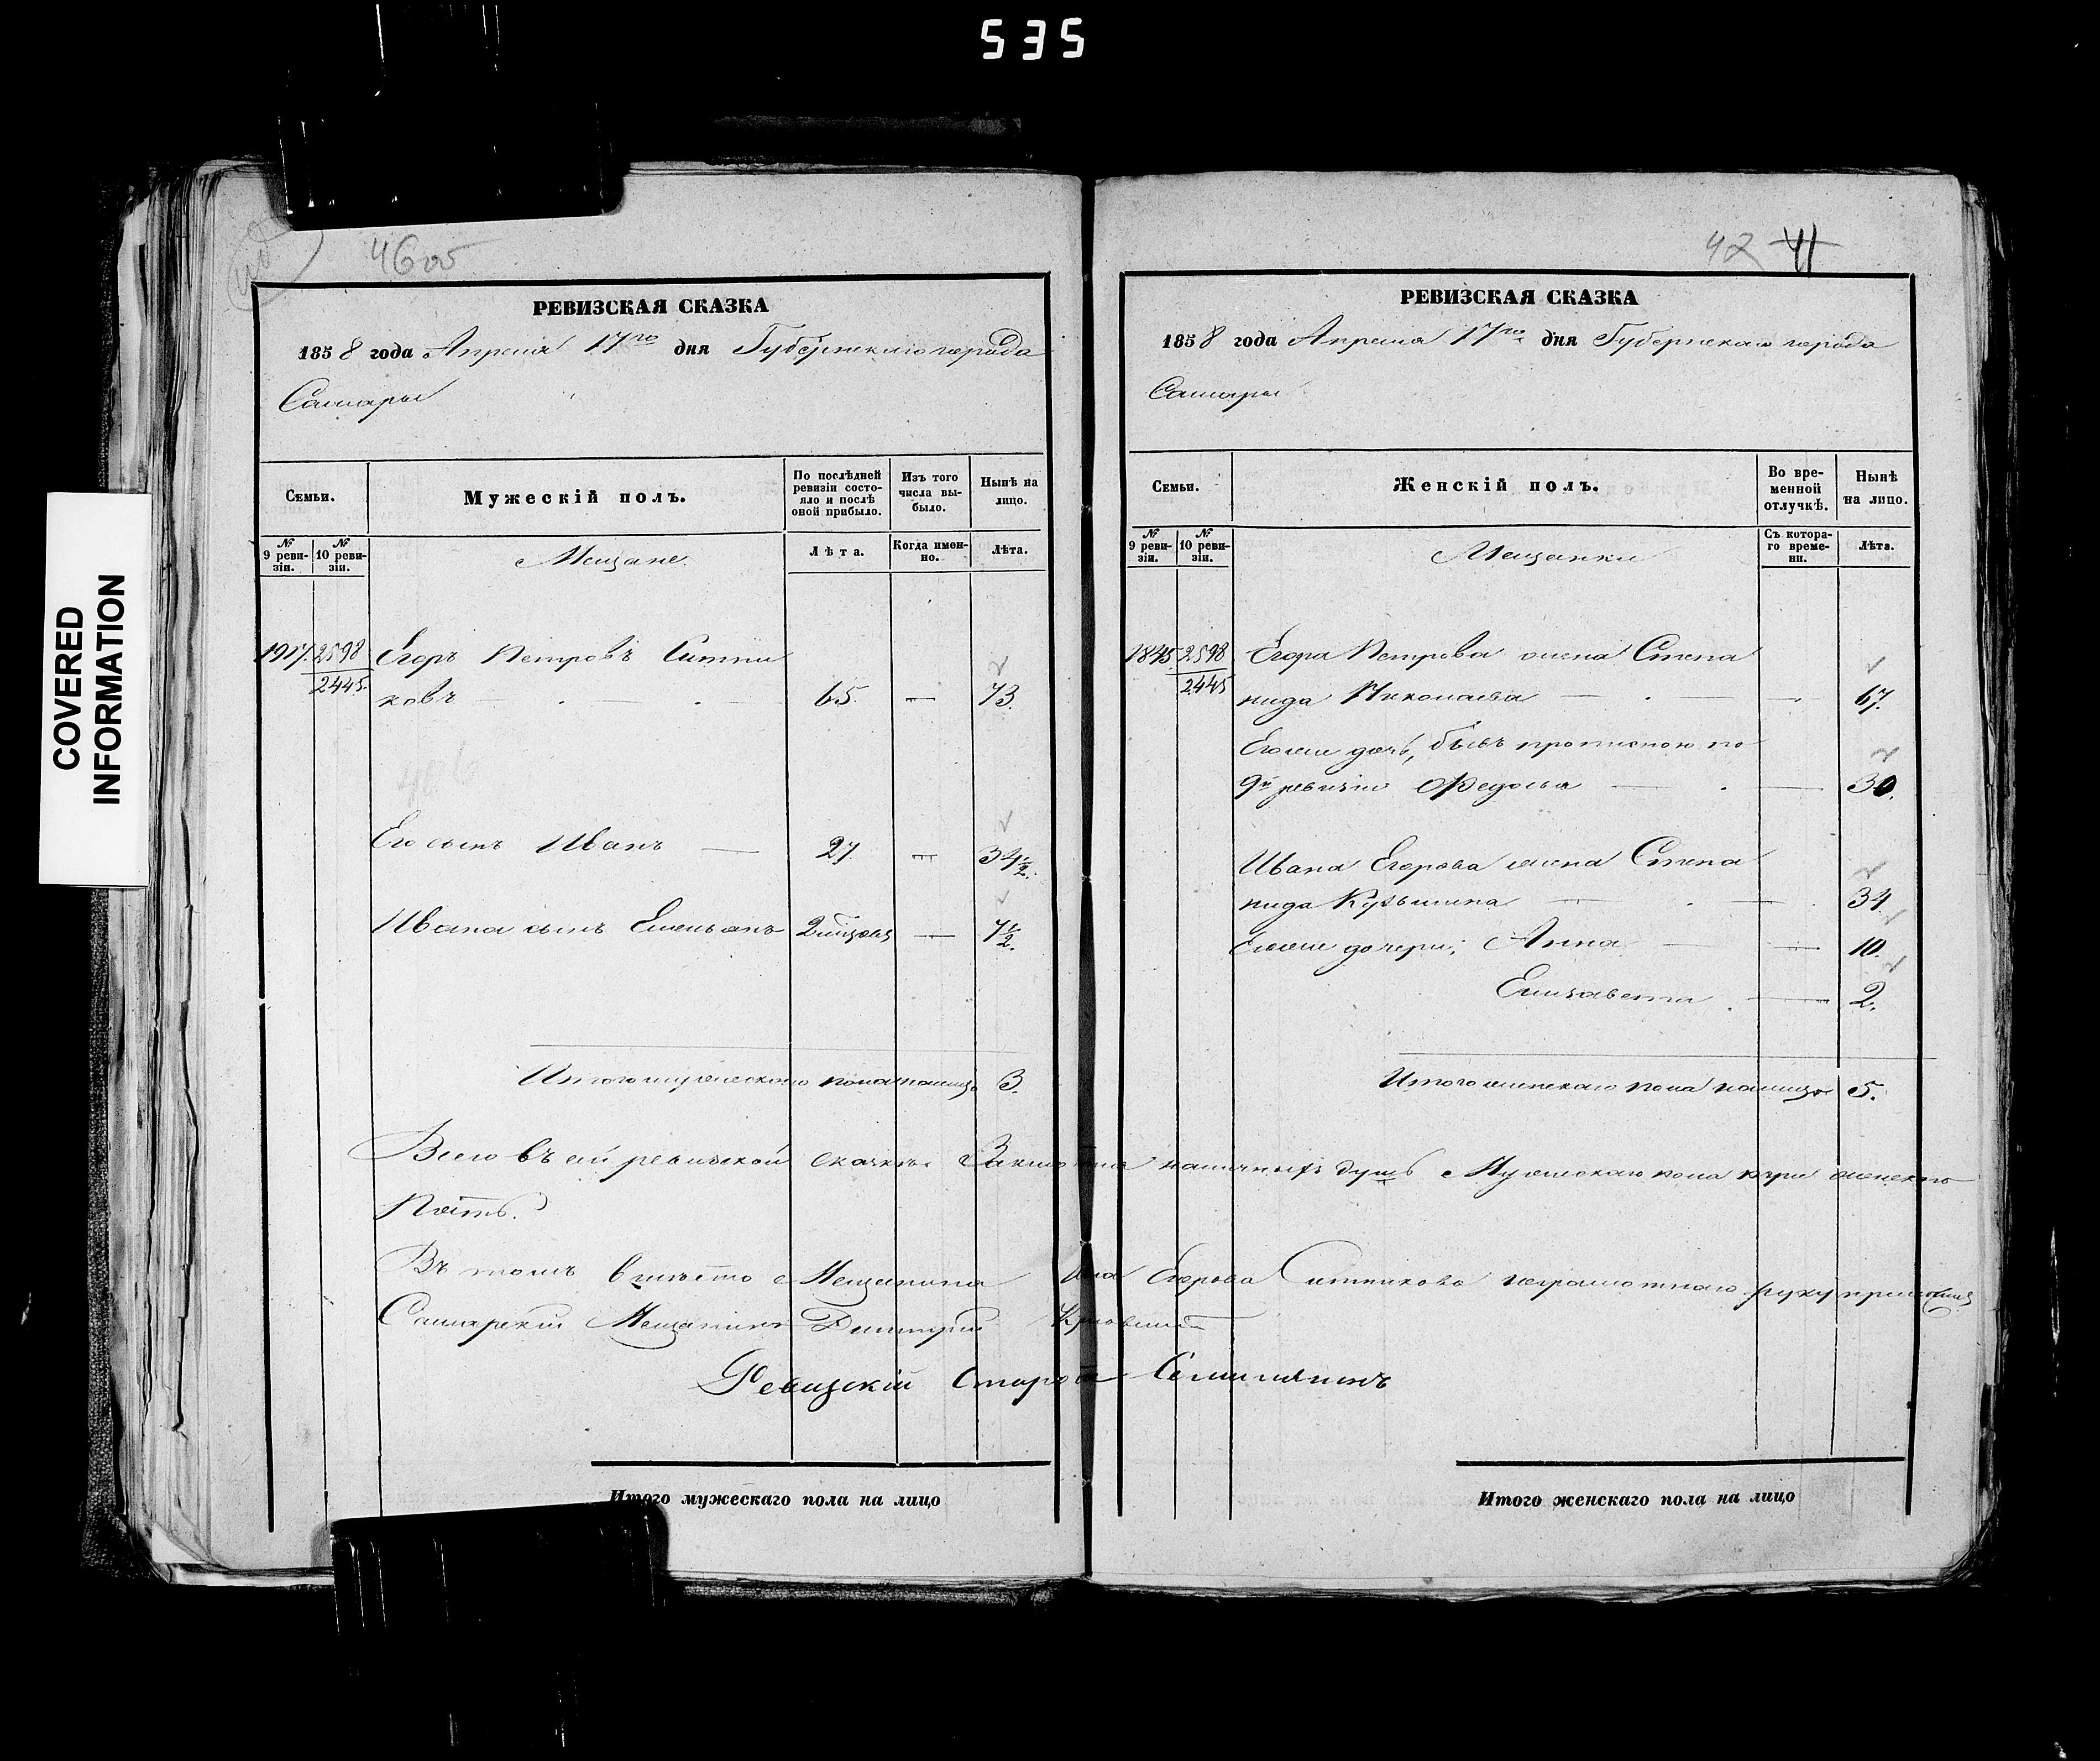 535
COVERED
INFORMATION
4600
РЕВИЗСКАЯ СКАЗКА
1858 года Апреля 17го дня Губернскаго города
Самары
Семьи.
Мужескій полъ.
По послѣдней ревизіи состояло и послѣ оной прибыло.
Изъ того числа выбыло.
Нынѣ на лицо.
№ 9 ревизіи.
№ 10 ревизіи.
Мещане.
Лѣта.
Когда именно.
Лѣта.
2598 Егоръ Петровъ Ситни
2445. ковъ — 65. — 73.
Его сынъ Иванъ — 27. — 34½.
Ивана сынъ Емельянъ 2 мѣсяц — 7½.
Итого мужескаго пола налицо 3.
42 41
РЕВИЗСКАЯ СКАЗКА
1858 года Апреля 17го дня Губернскаго города
Самары
Семьи.
Женскій полъ.
Во временной отлучкѣ.
Нынѣ на лицо.
№ 9 ревизіи.
№ 10 ревизіи.
Мещанки
Съ котораго времени.
Лѣта.
1845. 2598 Егора Петрова жена Степа
2445 нида Николаева — — 67.
Его же дочь, бывъ прописною по
9й ревизіи Федосья — — 30.
Ивана Егорова жена Степа
нида Кузьмина — — 34
Его же дочери: Анна — 10.
Елизавета — 2.
Итого женскаго пола налицо 5.
Всего въ сей ревизской сказкѣ наличныхъ душъ Мужескаго пола три женска
Пять.
Въ томъ вместо Мещанина Егорова Ситникова неграмотнаго руку приложилъ
Самарскій Мещанинъ Дмитрій
Ревизскій Староста
Итого мужескаго пола на лицо
Итого женскаго пола на лицо